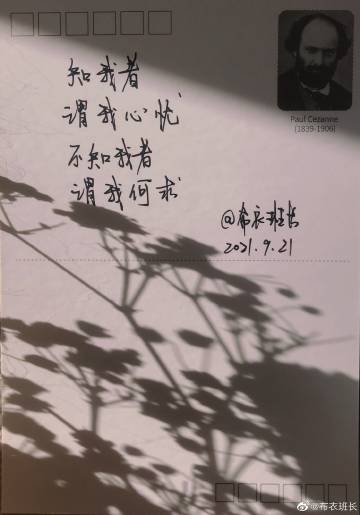 Paul Cezanne
(1839-1906)
知我者
谓我心忧
不知我者
谓我何求
@布衣班长
2021.9.21
@布衣班长